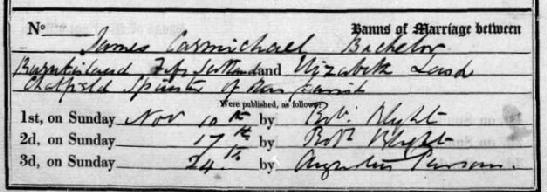 No Banns of Marriage between
James Carmichael Bachelor
Burntisland Fife Scotland and Elizabeth Land
Chatfield Spinster of this Parish
Were published, as follows:
1st, on Sunday Nov 10th by Robt Blyght
2d, on Sunday 17th by Robt Blyght
3d, on Sunday 24th by Augustus Parsons.